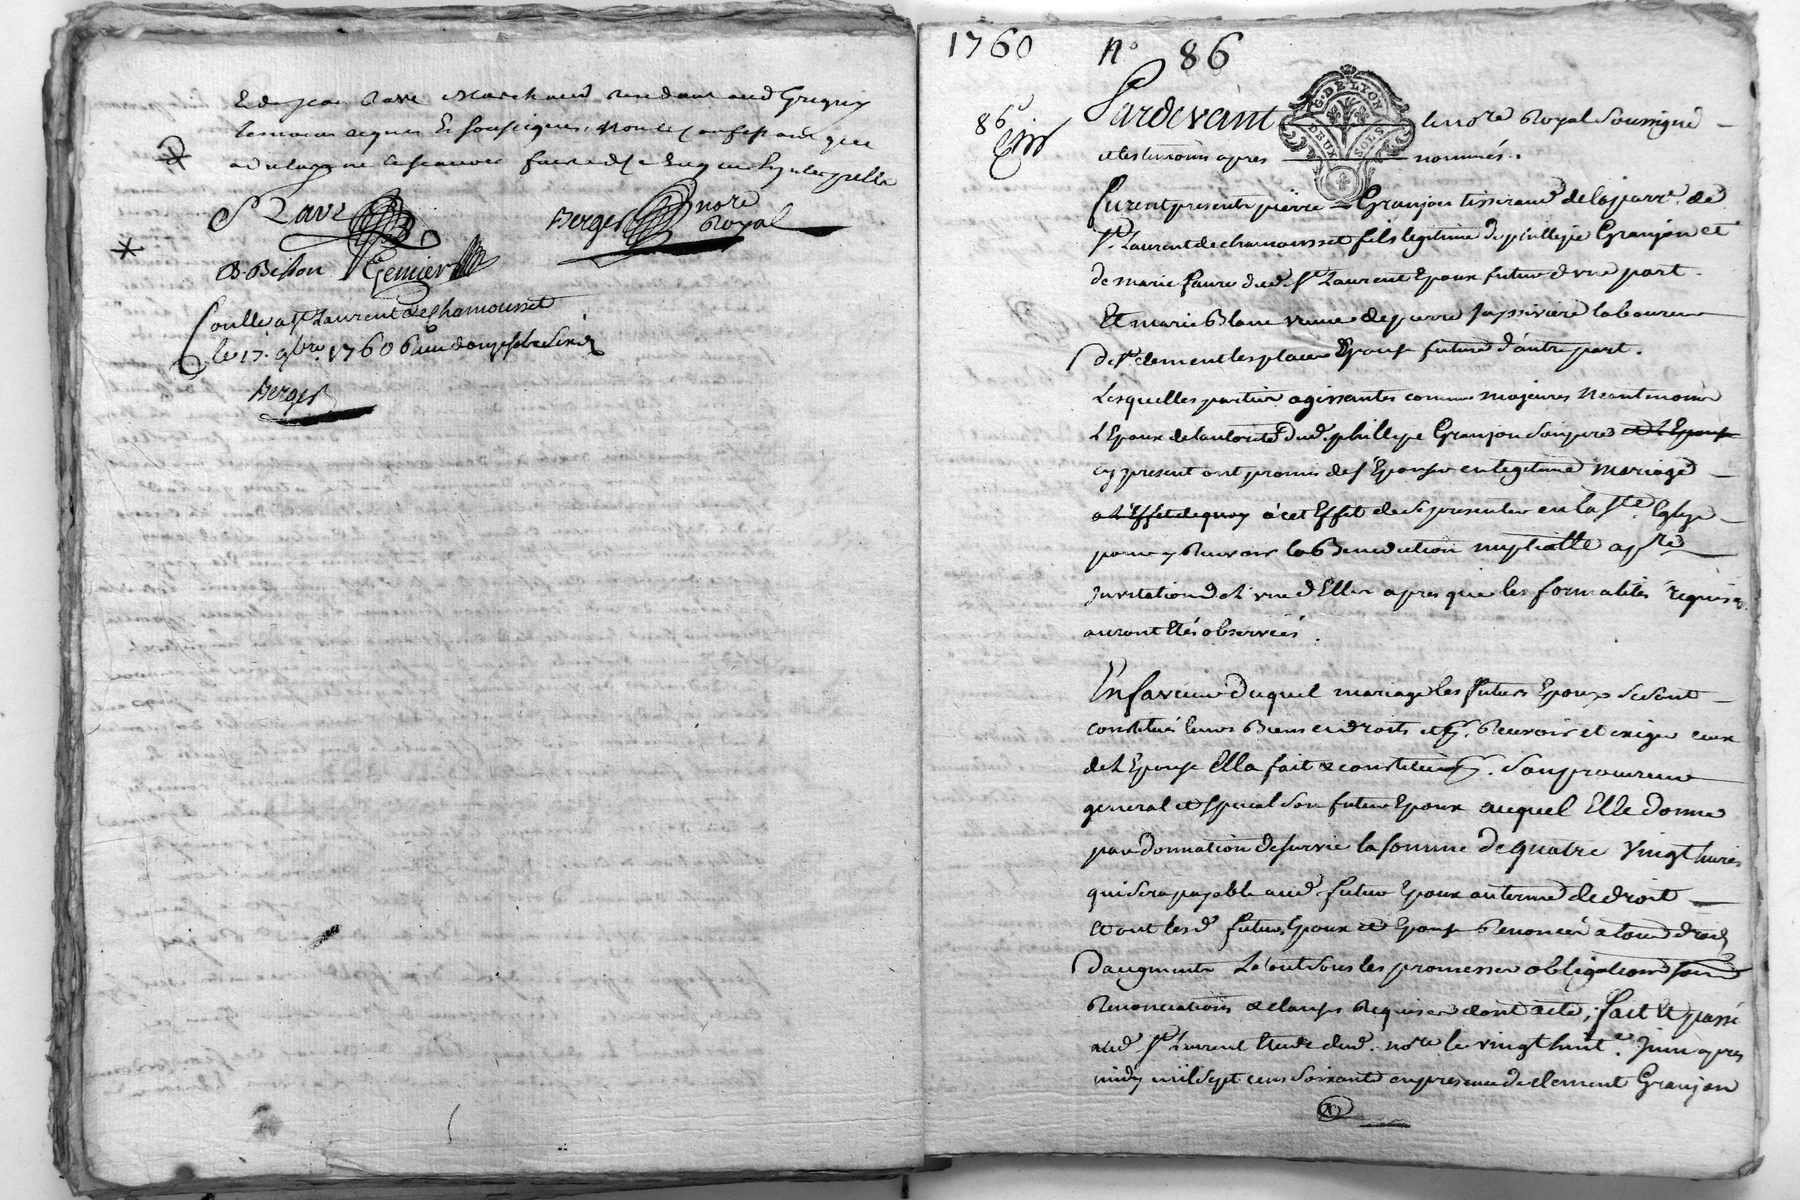 E de jean Ravé Marchand
temoins requis Et soussignés,
Ravé
Berger nore Royal
B. Bisson Genier
Conllé a St Laurent de Chamousset
le 17. 9bre. 1760
Berger
1760 n° 86
86
Pardevant le nore Royal soussigné
et les temoins apres nommés.
G. DE LYON
DEUX SOLS
furent presents pierre Granjon tisserand de la parr. de
St. Laurent de chamousset fils legitime de phillipe Granjon et
de marie faure dud. St Laurent Epoux futur d'une part.
Et marie Blanc veuve de pierre laboureur
de St clement les places Epouse future d'autre part.
Lesquelles parties agissantes comme majeures neantmoins
l'Epoux de l'autorité dud. phillipe Granjon son pere et l'Epouse
cy present ont promis de s'Epouser en legitime mariage
a l'Effet de quoy a cet Effet de se presenter en la Ste. Eglise
pour y Recevoir la Benediction nuptialle
invitation de l'une d'Elles apres que les formalités requises
auront Etés observées.
En faveur Duquel mariage les futurs Epoux se sont
constitués leurs Biens et droits et p. Recevoir et exiger ceux
de l'Epouse Elle fait & constitue p. son procureur
general et special son futur Epoux auquel Elle donne
par donnation de survie la somme de quatre vingt livres
qui sera payable aud. futur Epoux au terme de droit
Et ont lesd. futurs Epoux et Epouse Renoncés a tous droits
d'augments Le tout sous les promesses obligations
Renonciations & clauses Requises dont acte, fait Et passé
aud St Laurent Etude dud. nore le vingt huit Juin apres
midy mil sept cens soixante en presence de clement Granjon